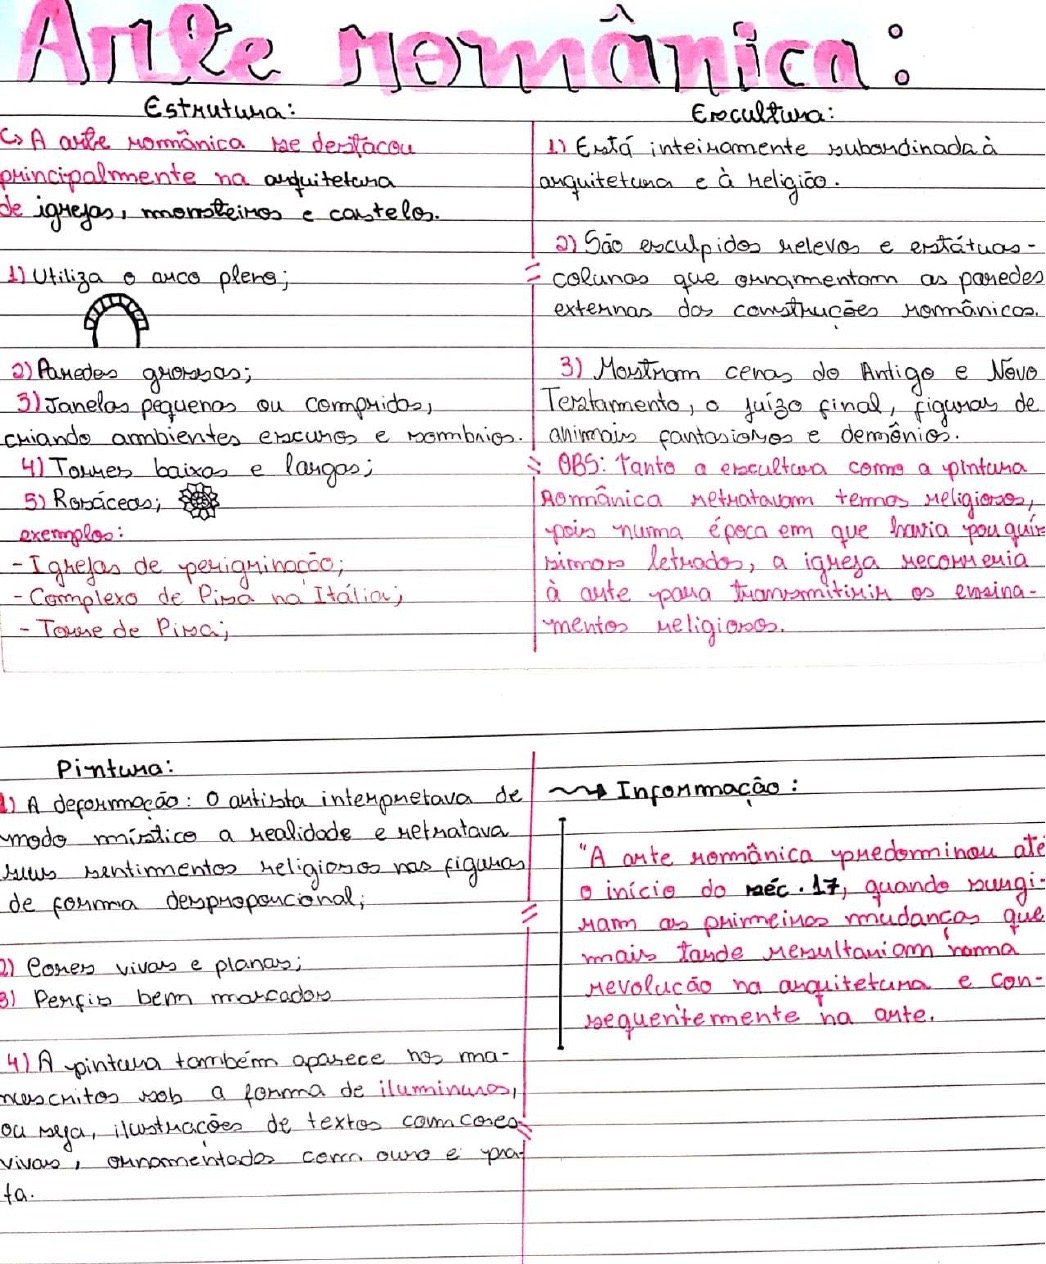 Arte românica:
Estrutura:
A arte românica se destacou
principalmente na arquitetura
de igrejas, monsteiros e castelos.
1) Utiliza o arco pleno;
2) Paredes grossas;
3) Janelas pequenas ou compridas,
criando ambientes escuros e sombrios.
4) Torres baixas e largas;
5) Rosáceas;
exemplos:
- Igrejas de perigrinação;
- Complexo de Pisa na Itália;
- Torre de Pisa;
Escultura:
1) Está inteiramente subordinada à
arquitetura e à religião.
2) São esculpidos relevos e estátuas-
colunas que ornamentam as paredes
externas das construções românicas.
3) Mostram cenas do Antigo e Novo
Testamento, o juízo final, figuras de
animais fantasiosos e demônios.
OBS: Tanto a escultura como a pintura
Românica retratavam temas religiosos,
pois numa época em que havia pouquís-
simos letrados, a igreja recorreria
à arte para transmitirir os ensina-
mentos religiosos.
Pintura:
1) A deformação: O artista interpretava de
modo místico a realidade e retratava
seus sentimentos religiosos nas figuras
de forma desproporcional;
2) Cores vivas e planas;
3) Perfis bem marcados
4) A pintura também aparece nos ma-
nuscritos sob a forma de iluminuras,
ou seja, ilustrações de textos com cores
vivas, ornamentados com ouro e pra-
ta.
Informação:
"A arte românica predominou até
o início do séc. 17, quando surgi-
ram as primeiras mudanças que
mais tarde resultariam numa
revolução na arquitetura e con-
sequentemente na arte.